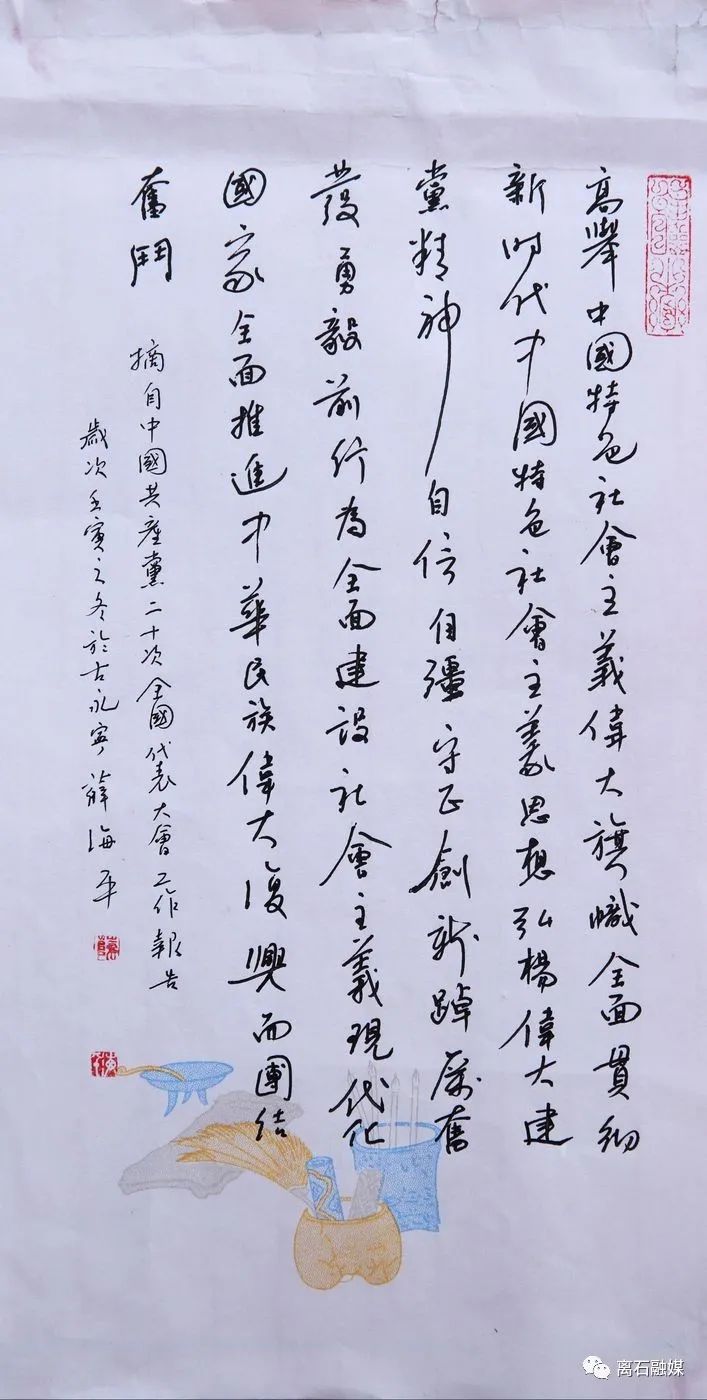 高舉中國特色社會主義偉大旗幟全面貫彻
新时代中國特色社會主義思想弘楊偉大建
黨精神自信自彊守正創新踔厲奮
發勇毅前行為全面建設社會主義現代化
國家全面推進中華民族偉大復興而團结
奮鬥
摘自中國共產黨二十次全國代表大會工作報告
歲次壬寅之冬於古永寧薛海平
离石融媒